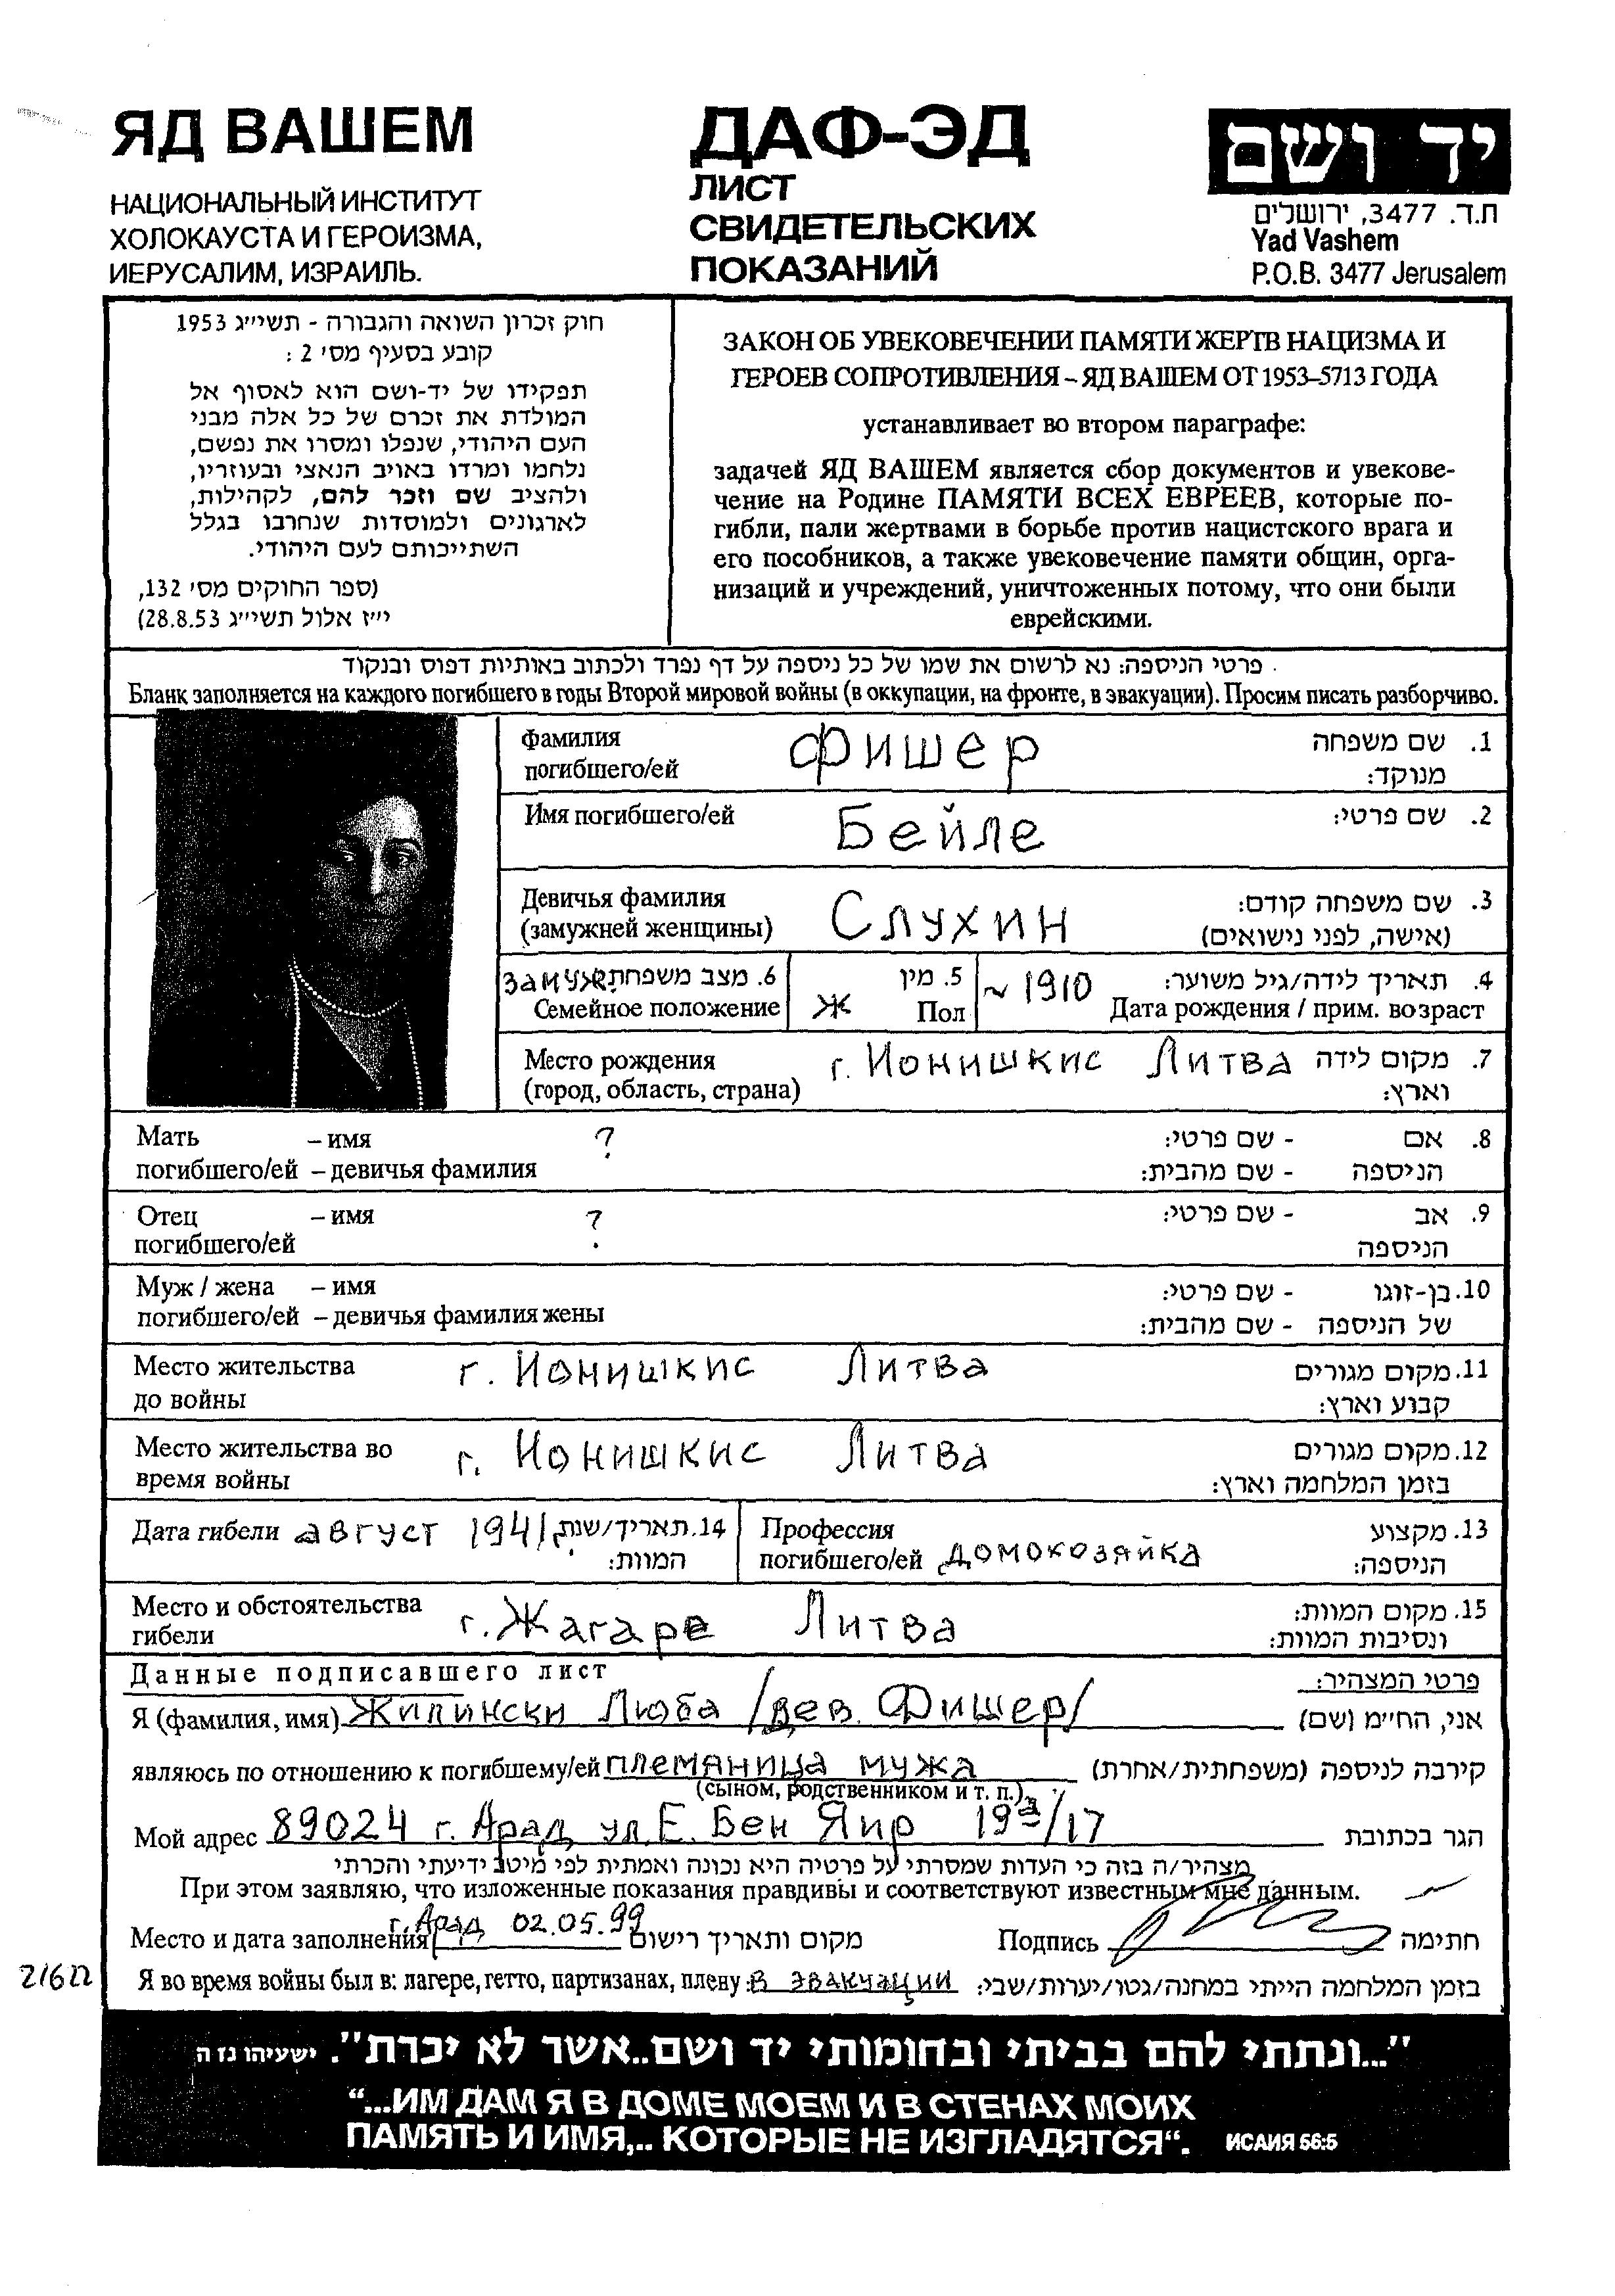 ЯД ВАШЕМ
НАЦИОНАЛЬНЫЙ ИНСТИТУТ
ХОЛОКАУСТА И ГЕРОИЗМА,
ИЕРУСАЛИМ, ИЗРАИЛЬ.
ДАФ-ЭД
ЛИСТ
СВИДЕТЕЛЬСКИХ
ПОКАЗАНИЙ
יד ושם
ת.ד. 3477, ירושלים
Yad Vashem
P.O.B. 3477 Jerusalem
חוק זכרון השואה והגבורה - תשי״ג 1953
קובע בסעיף מס׳ 2 :
תפקידו של יד-ושם הוא לאסוף אל
המולדת את זכרם של כל אלה מבני
העם היהודי, שנפלו ומסרו את נפשם,
נלחמו ומרדו באויב הנאצי ובעוזריו,
ולהציב שם וזכר להם, לקהילות,
לארגונים ולמוסדות שנחרבו בגלל
השתייכותם לעם היהודי.
(ספר החוקים מס׳ 132,
י״ז אלול תשי״ג 28.8.53)
ЗАКОН ОБ УВЕКОВЕЧЕНИИ ПАМЯТИ ЖЕРТВ НАЦИЗМА И
ГЕРОЕВ СОПРОТИВЛЕНИЯ – ЯД ВАШЕМ ОТ 1953–5713 ГОДА
устанавливает во втором параграфе:
задачей ЯД ВАШЕМ является сбор документов и увекове-
чение на Родине ПАМЯТИ ВСЕХ ЕВРЕЕВ, которые по-
гибли, пали жертвами в борьбе против нацистского врага и
его пособников, а также увековечение памяти общин, орга-
низаций и учреждений, уничтоженных потому, что они были
еврейскими.
פרטי הניספה: נא לרשום את שמו של כל ניספה על דף נפרד ולכתוב באותיות דפוס ובנקוד
Бланк заполняется на каждого погибшего в годы Второй мировой войны (в оккупации, на фронте, в эвакуации). Просим писать разборчиво.
Фамилия Фишер 1. שם משפחה
погибшего/ей מנוקד:
Имя погибшего/ей Бейле 2. שם פרטי:
Девичья фамилия Слухин 3. שם משפחה קודם:
(замужней женщины) (אישה, לפני נישואים)
замуж. 6. מצב משפחתי 5. מין ~ 1910 4. תאריך לידה/גיל משוער:
Семейное положение Ж Пол Дата рождения / прим. возраст
Место рождения г. Ионишкис Литва 7. מקום לידה
(город, область, страна) וארץ:
Мать – имя ? 8. אם - שם פרטי:
погибшего/ей – девичья фамилия הניספה - שם מהבית:
Отец – имя ? 9. אב - שם פרטי:
погибшего/ей הניספה
Муж / жена – имя 10. בן-זוגו - שם פרטי:
погибшего/ей – девичья фамилия жены של הניספה - שם מהבית:
Место жительства г. Ионишкис Литва 11. מקום מגורים
до войны קבוע וארץ:
Место жительства во г. Ионишкис Литва 12. מקום מגורים
время войны בזמן המלחמה וארץ:
Дата гибели август 1941 14. תאריך/שנת Профессия 13. מקצוע
המוות: погибшего/ей домохозяйка הניספה:
Место и обстоятельства г. Жагаре Литва 15. מקום המוות:
гибели ונסיבות המוות:
Данные подписавшего лист פרטי המצהיר:
Я (фамилия, имя) Жилински Люба /дев. Фишер/ אני, הח״מ (שם)
являюсь по отношению к погибшему/ей племяница мужа קירבה לניספה (משפחתית/אחרת)
(сыном, родственником и т. п.)
Мой адрес 89024 г. Арад ул. Е. Бен Яир 19а/17 הגר בכתובת
מצהיר/ה בזה כי העדות שמסרתי על פרטיה היא נכונה ואמתית לפי מיטב ידיעתי והכרתי
При этом заявляю, что изложенные показания правдивы и соответствуют известным мне данным.
Место и дата заполнения г. Арад 02.05.99 מקום ותאריך רישום Подпись חתימה
21622
Я во время войны был в: лагере, гетто, партизанах, плену: в эвакуации בזמן המלחמה הייתי במחנה/גטו/יערות/שבי:
"...ונתתי להם בביתי ובחומותי יד ושם..אשר לא יכרת". ישעיהו נז ה
“...ИМ ДАМ Я В ДОМЕ МОЕМ И В СТЕНАХ МОИХ
ПАМЯТЬ И ИМЯ,.. КОТОРЫЕ НЕ ИЗГЛАДЯТСЯ“. ИСАИЯ 56:5